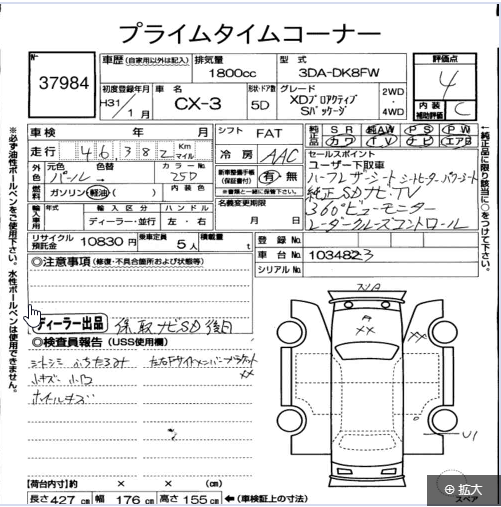 プライムタイムコーナー
37984
車歴 (自家用以外は記入)
排気量
1800cc
型式
3DA-DK8FW
評価点
4
初度登録年月
H31/1月
車名
CX-3
形状・ドア数
5D
グレード
XDプロアクティブ
Sパッケージ
2WD
・
4WD
内装
補助評価
C
車検 年 月
シフト
FAT
純正品
SR 純AW PS PW
カワ TV ナビ エアB
走行
46,382
Km
マイル
冷房
AAC
セールスポイント
ユーザー下取車
ハーフレザーシート シートヒーター パワーシート
純正SDナビ・TV
360°ビューモニター
レーダークルーズコントロール
外色
元色
パール
色替
→
カラーNo.
25D
燃料
ガソリン・軽油・( )
内装色
新車整備手帳
(保証書付)
有・無
※書類と一緒に保管して下さい。
輸入車用
年式
輸入区分
ディーラー・並行
ハンドル
左・右
名義変更期限
月 日
リサイクル
預託金
10830 円
乗車定員
5 人
積載量
t
登録No.
車台No.
103482
シリアルNo.
◎注意事項 (修復・不具合箇所および状態等)
ディーラー出品
保取ナビSD後日
◎検査員報告 (USS使用欄)
シートシミ ふちたるみ
小キズ 小凹
ホイールキズ
左右Fサイドメンバーブラケット
××
N/A
A
××
××
U1
スペア
【荷台内寸】約 × × (cm)
長さ 427 cm 幅 176 cm 高さ 155 cm
←(車検証上の寸法)
※必ず油性ボールペンをご使用下さい。水性ボールペンは使用できません。
←純正品に限り該当に○をつけて下さい。
拡大